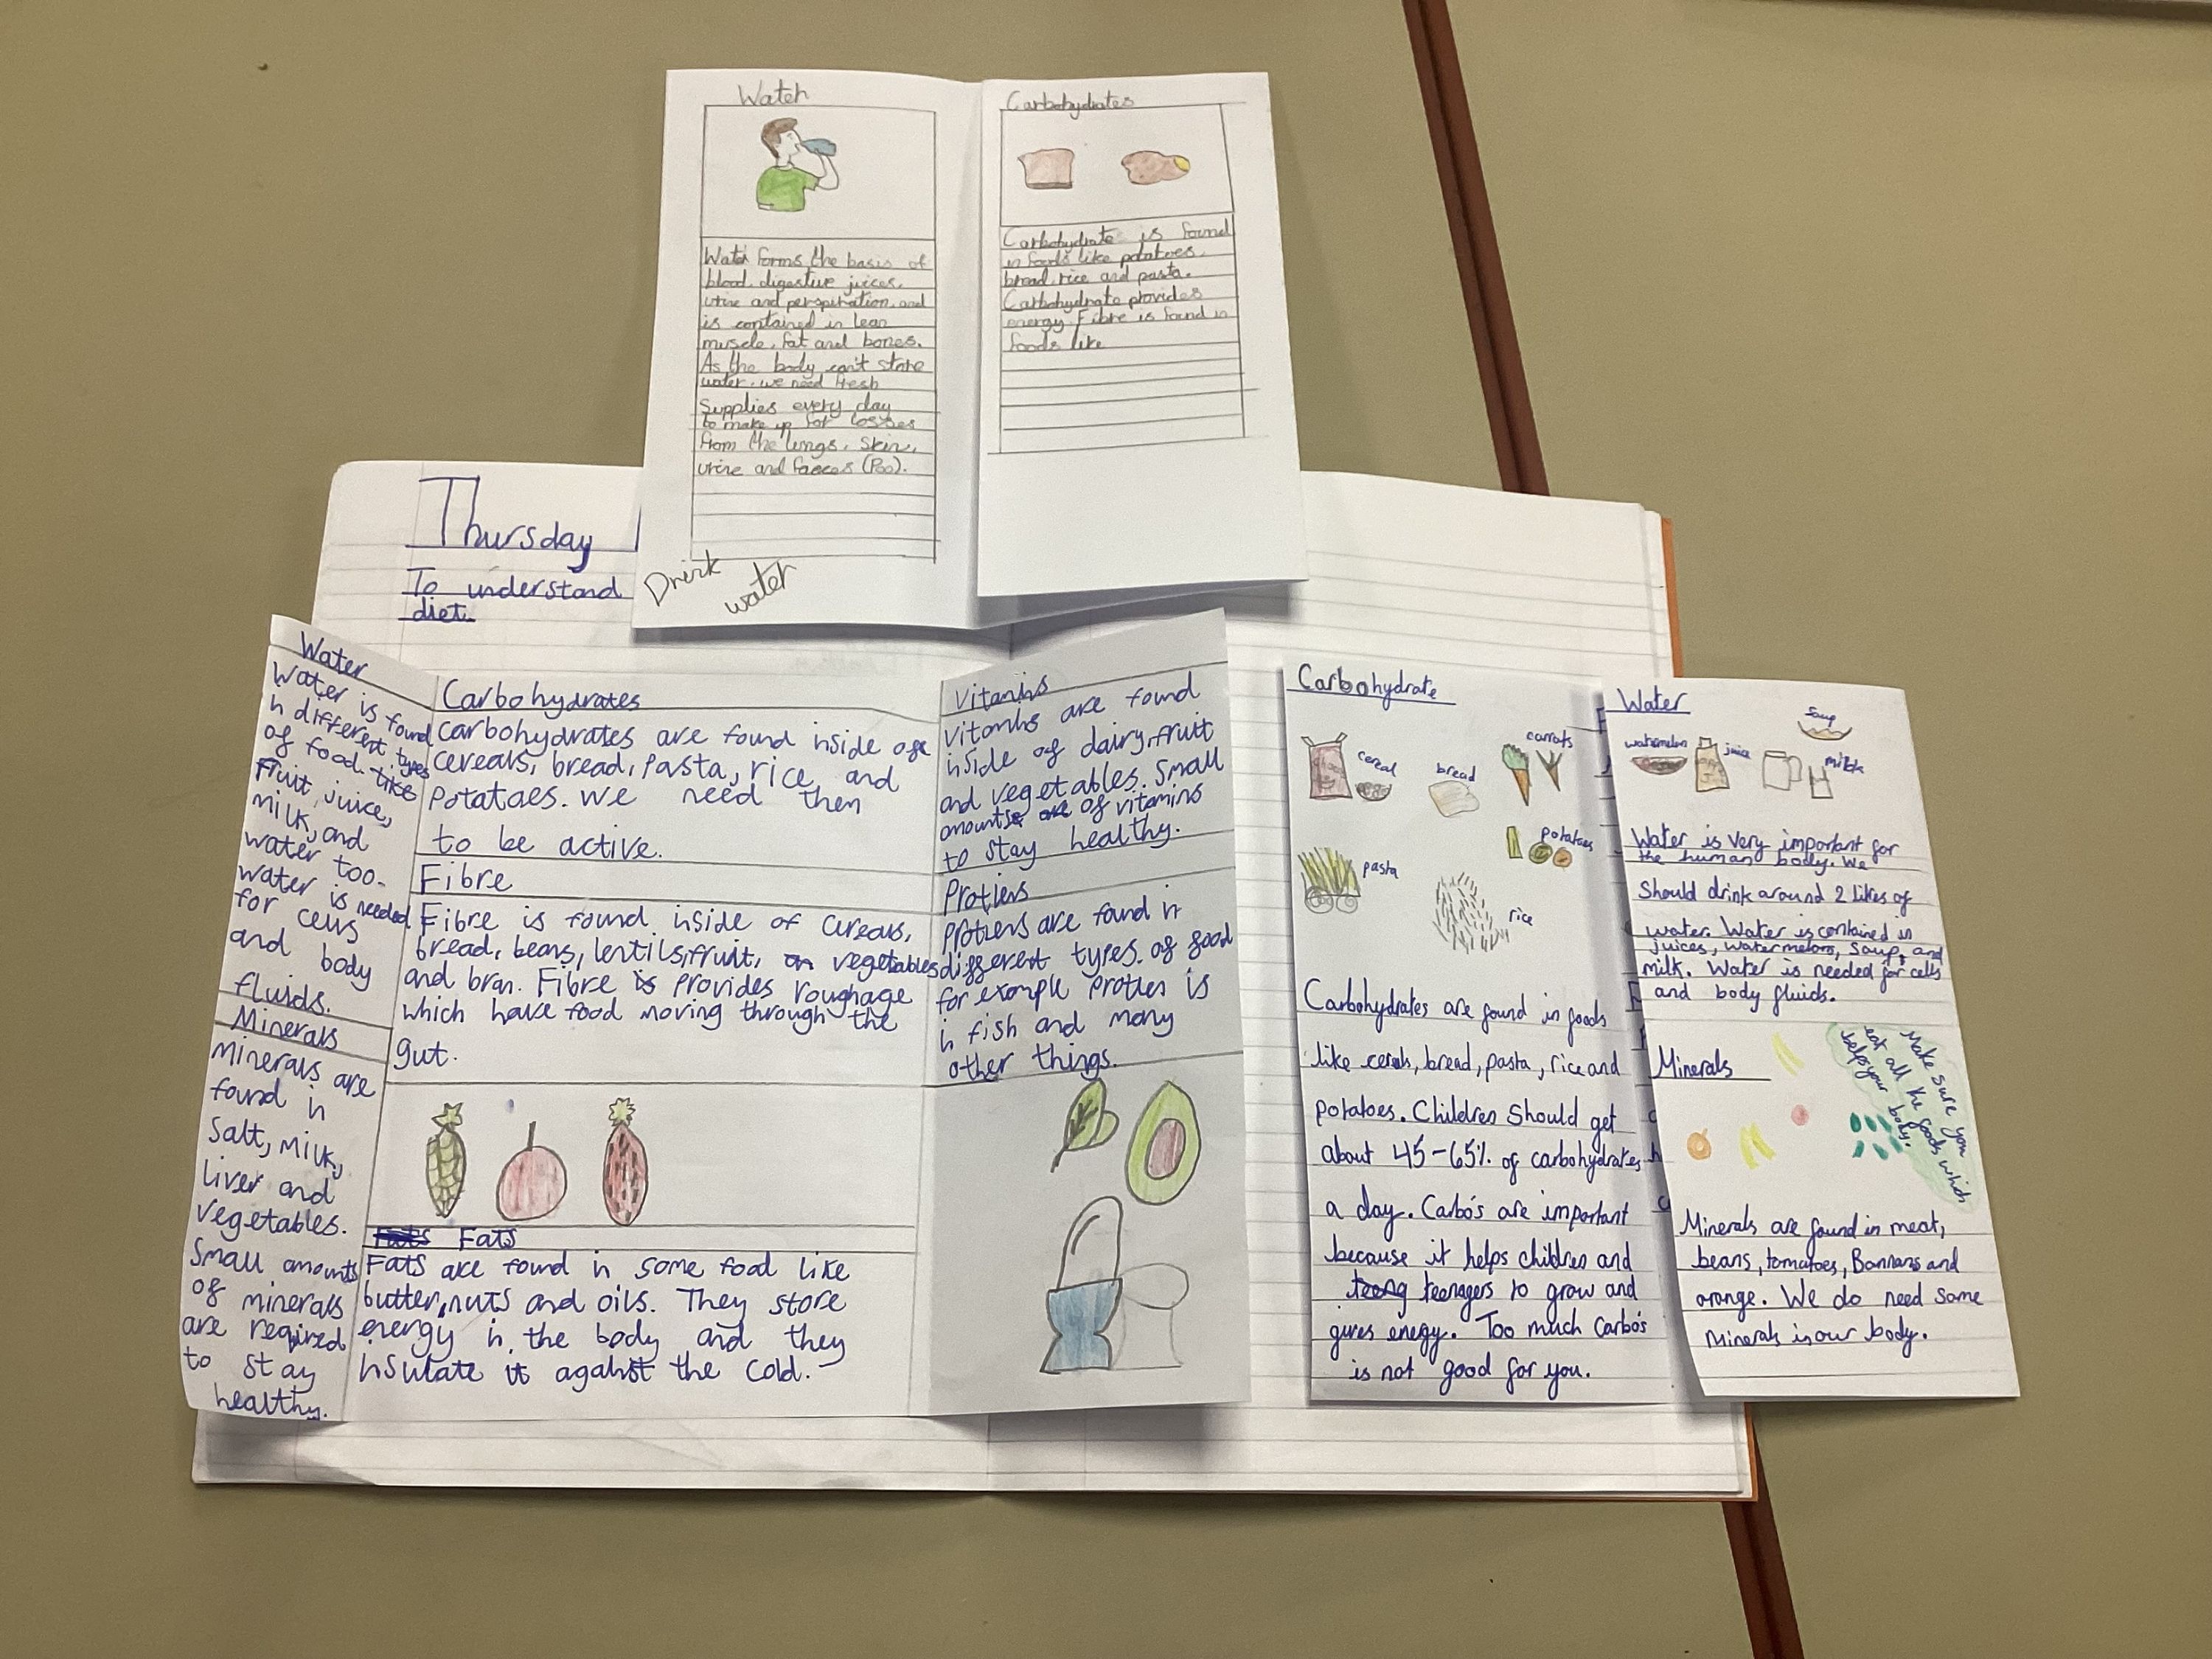 Water
Water forms the basis of
blood, digestive juices,
urine and perspiration, and
is contained in lean
muscle, fat and bones.
As the body can't store
water, we need fresh
Supplies every day
to make up for losses
from the lungs, skin,
urine and faeces (Poo).
Drink
water
Carbohydrates
Carbohydrate is found
in foods like potatoes,
bread, rice and pasta.
Carbohydrate provides
energy. Fibre is found in
foods like
Thursday
To understand
diet.
Water
Water is found
in different types
of food like
fruit, juice,
milk, and
water too.
water is needed
for cells
and body
fluids.
Minerals
Minerals are
found in
salt, milk,
liver and
vegetables.
Small amounts
of minerals
are reqired
to stay
healthy.
Carbohydrates
carbohydrates are found inside of
cereals, bread, pasta, rice and
potatoes. we need them
to be active.
Fibre
Fibre is found inside of cereals,
bread, beans, lentils, fruit, vegetables
and bran. Fibre is provides roughage
which have food moving through the
gut.
Fats Fats
Fats are found in some food like
butter, nuts and oils. They store
energy in the body and they
insulate it against the cold.
Vitamins
vitamins are found
inside of dairy, fruit
and vegetables. Small
amounts of vitamins
to stay healthy.
Protiens
protiens are found in
different types of food
for example protien is
in fish and many
other things.
Carbohydrate
cereal
bread
carrots
potatoes
pasta
rice
Carbohydrates are found in foods
like cereals, bread, pasta, rice and
potatoes. Children should get
about 45-65% of carbohydrates
a day. Carbo's are important
because it helps children and
teeng teenagers to grow and
gives enegy. Too much Carbo's
is not good for you.
Water
soup
watermelon
juice
milk
Water is very important for
the human body. We
should drink around 2 litres of
water. Water is contained in
juices, watermelon, soup, and
milk. Water is needed for cells
and body fluids.
Minerals
Make sure you
eat all the foods which
helps your body.
Minerals are found in meat,
beans, tomatoes, Bannans and
orange. We do need some
Minerals in our body.